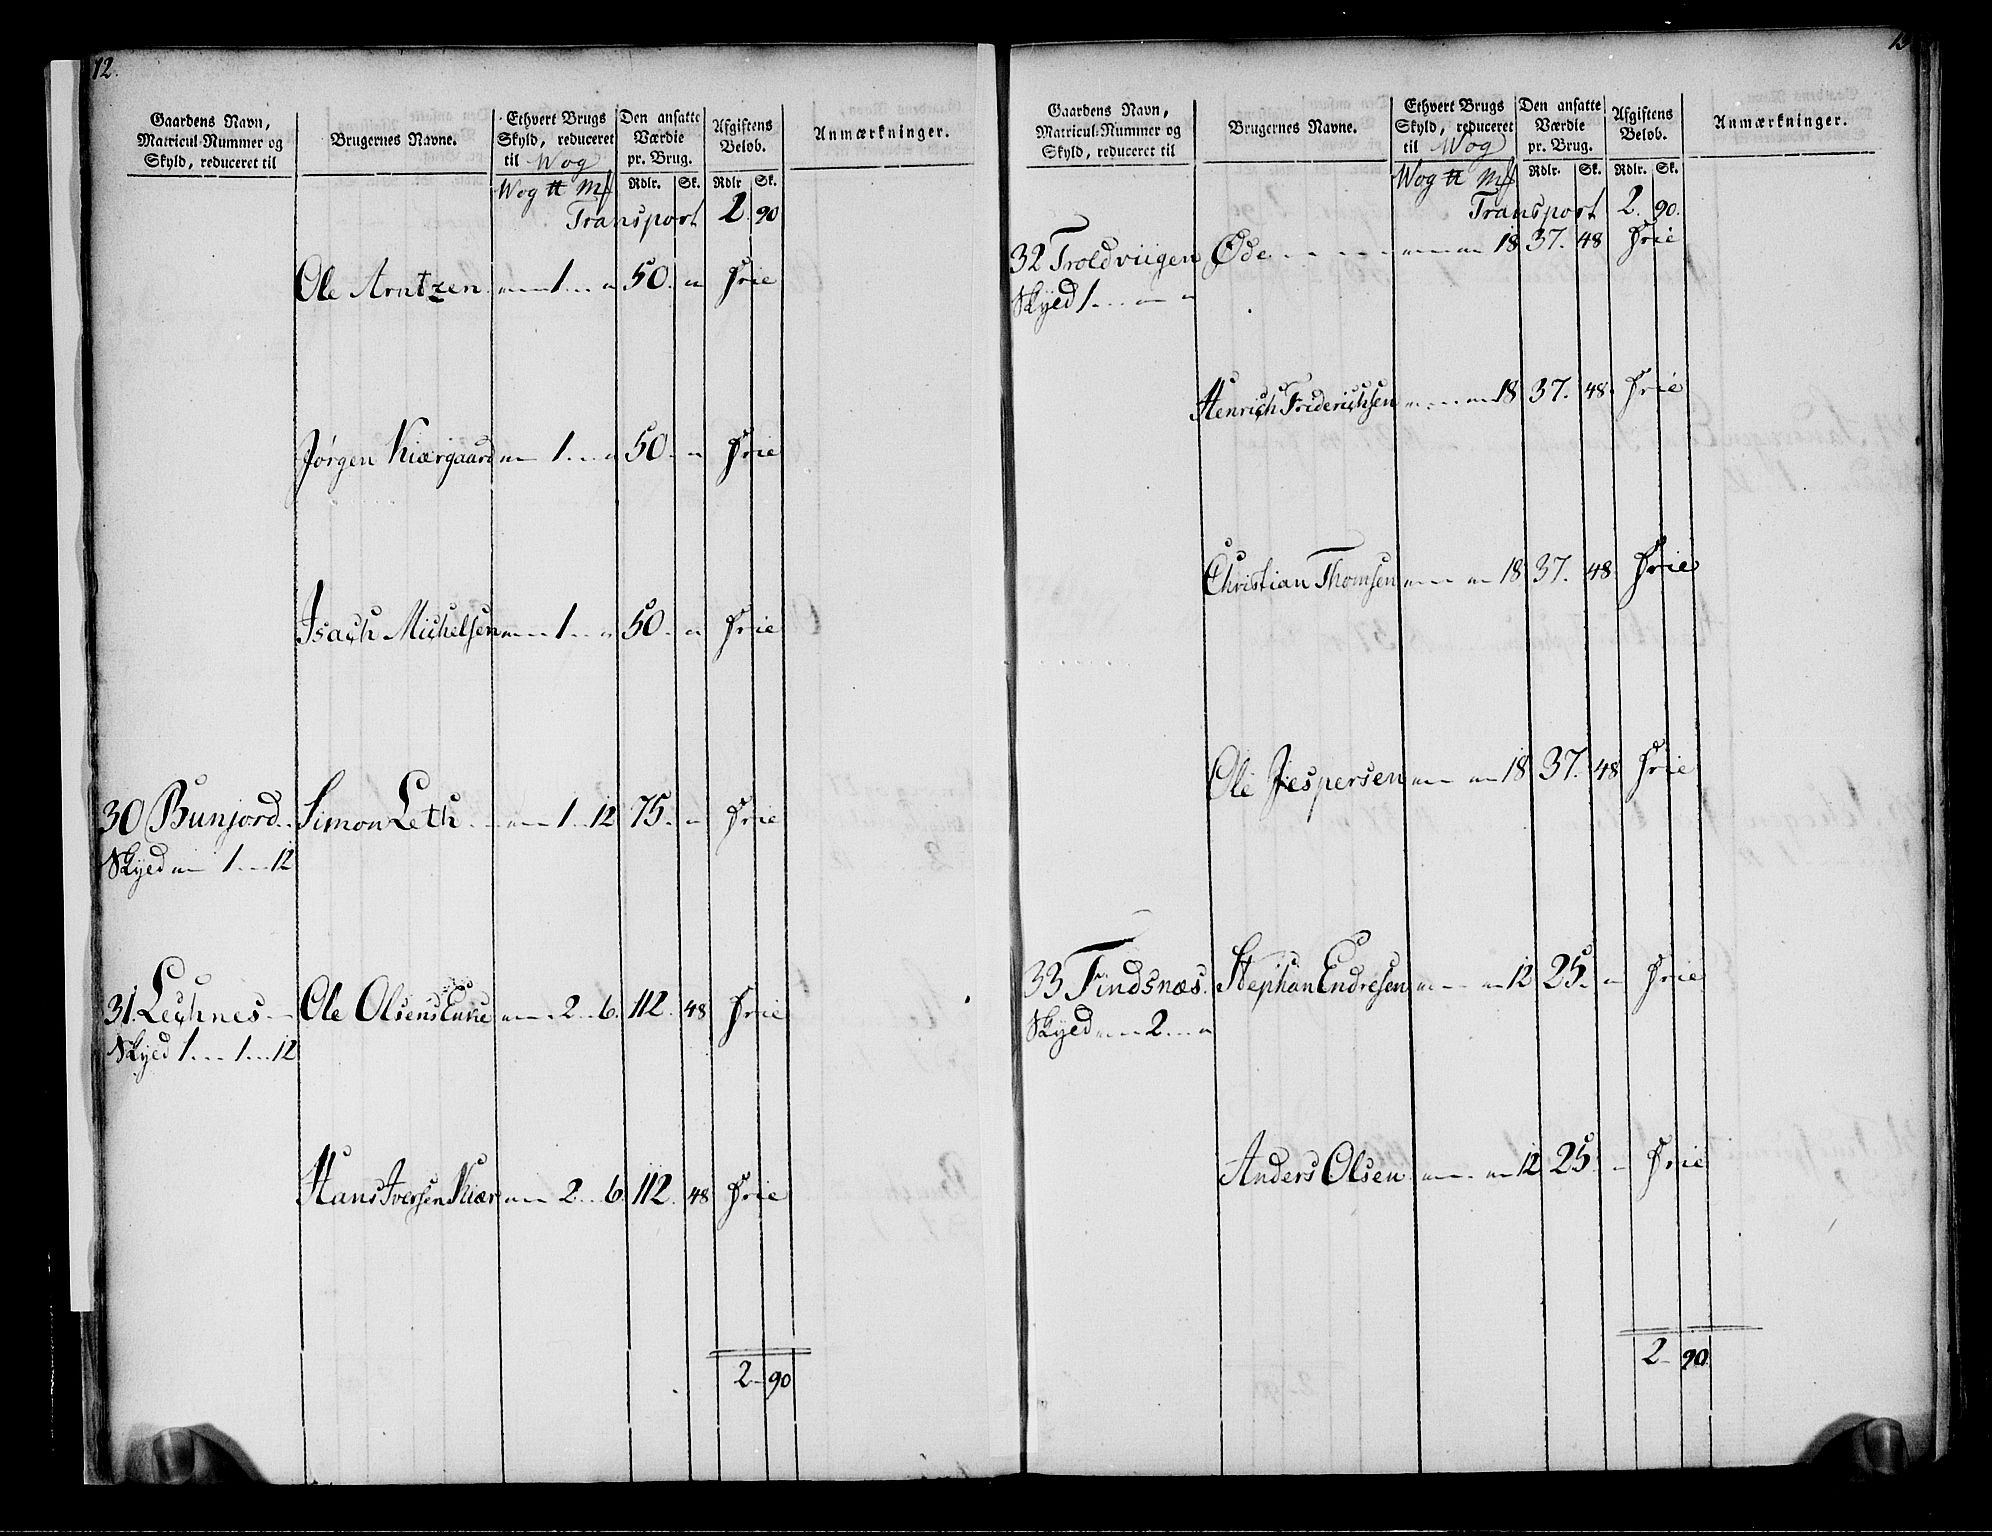 12.
Gaardens Navn, Matricul-Nummer og Skyld, reduceret til
Brugernes Navne.
Ethvert Brugs Skyld, reduceret til Wog
Den ansatte Værdie pr. Brug.
Afgiftens Beløb.
Anmærkninger.
Wog ℔ Mk Rdlr. Sk. Rdlr Sk.
Transport 2 90
Ole Arntzen 1 " 50 " Frie
Jørgen Kiærgaard " 1 " 50 " Frie
Isach Michelsen " 1 " 50 " Frie
30 Bunjord Simon Leth " 1 12 75 " Frie
Skyed " 1 12
31. Lechnes Ole Olsens Enke " 2 6. 112. 48 Frie
Skyed 1 1 12
Hans Iversen Kiær " 2 6. 112. 48 Frie
2 90
Gaardens Navn, Matricul-Nummer og Skyld, reduceret til
Brugernes Navne.
Ethvert Brugs Skyld, reduceret til Wog
Den ansatte Værdie pr. Brug.
Afgiftens Beløb.
Anmærkninger.
Wog ℔ Mk Rdlr. Sk. Rdlr. Sk.
Transport 2. 90.
32 Troldviigen Øde " " 18 37. 48 Frie
Skyed 1 " "
Henrich Friderichsen " " 18 37. 48. Frie
Christian Thomsen " " 18 37. 48. Frie
Ole Jespersen " " 18 37. 48 Frie
33 Findsnæs. Stephan Endresen " " 12 25. " Frie
Skyed " 2 "
Anders Olsen " " 12 25. " Frie
2 90.